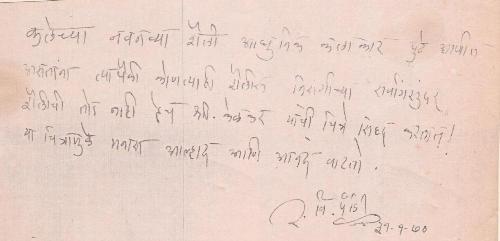 कलेच्या नवनव्या शैली आधुनिक कलाकार पुढे आणीत
असतांना त्यापैकी कोणत्याही शैलीस निसर्गाच्या सर्वांगसुंदर
शैलीची तोड नाही हेच श्री. केळकर यांची चित्रे सिद्ध करतात!
या चित्रांमुळे मनास आल्हाद आणि आनंद वाटतो.
वि. वा.